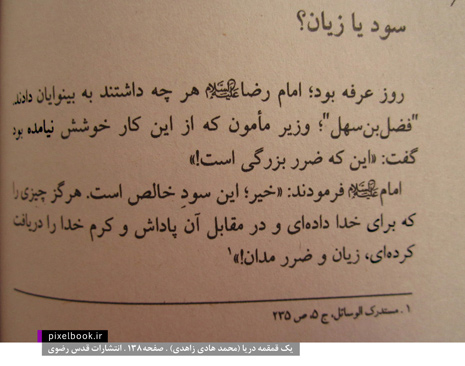 سود یا زیان؟
روز عرفه بود؛ امام رضا علیه‌السلام هر چه داشتند به بینوایان دادند.
"فضل‌بن‌سهل"؛ وزیر مأمون که از این کار خوشش نیامده بود
گفت: «این که ضرر بزرگی است!»
امام علیه‌السلام فرمودند: «خیر؛ این سودِ خالص است. هرگز چیزی را
که برای خدا داده‌ای و در مقابل آن پاداش و کرم خدا را دریافت
کرده‌ای، زیان و ضرر مدان!»۱
۱ . مستدرک الوسائل، ج ۵، ص ۲۳۵
pixelbook.ir
یک قمقمه دریا (محمد هادی زاهدی) . صفحه ۱۳۸ . انتشارات قدس رضوی